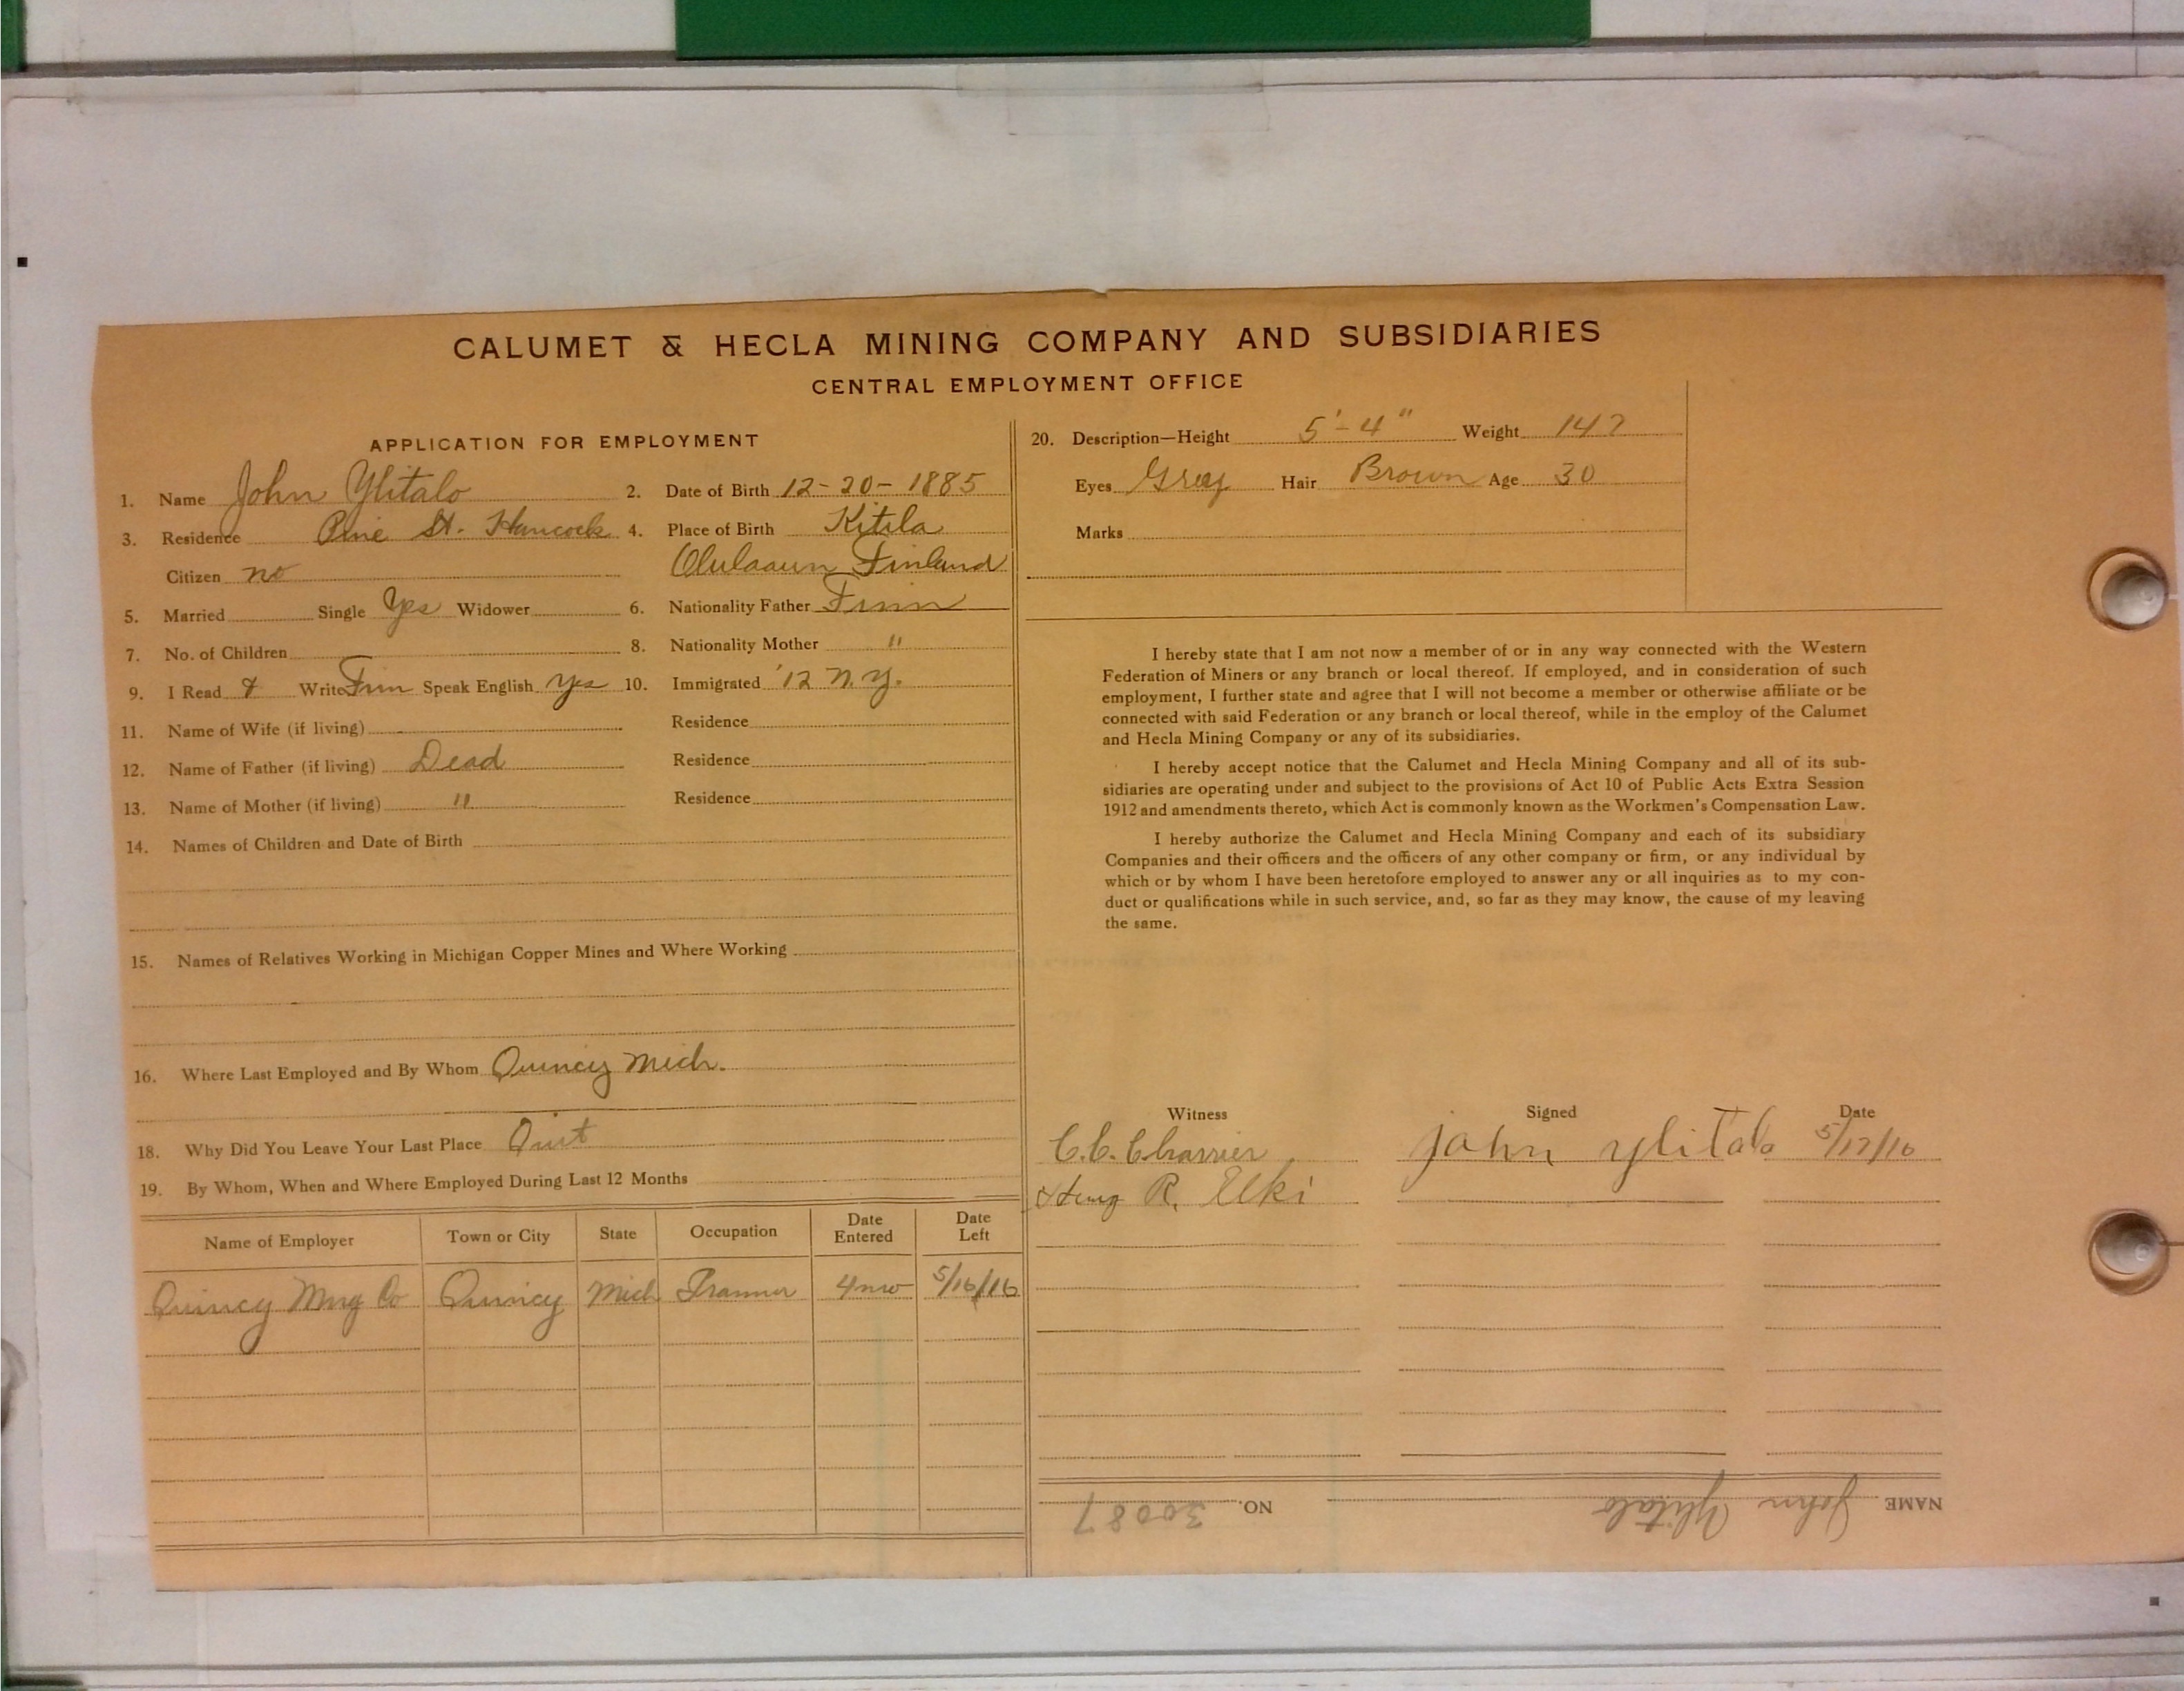 CALUMET & HECLA MINING COMPANY AND SUBSIDIARIES
CENTRAL EMPLOYMENT OFFICE
APPLICATION FOR EMPLOYMENT
1. Name John Ylitalo 2. Date of Birth 12-20-1885
3. Residence Pine St. Hancock 4. Place of Birth Kitila
Citizen no Finland
5. Married Single Yes Widower 6. Nationality Father Finn
7. No. of Children 8. Nationality Mother "
9. I Read & Write Finn Speak English Yes 10. Immigrated '12 N.Y.
11. Name of Wife (if living) Residence
12. Name of Father (if living) Dead Residence
13. Name of Mother (if living) " Residence
14. Names of Children and Date of Birth
15. Names of Relatives Working in Michigan Copper Mines and Where Working
16. Where Last Employed and By Whom Quincy Mich.
18. Why Did You Leave Your Last Place Quit
19. By Whom, When and Where Employed During Last 12 Months
Name of Employer Town or City State Occupation Date Entered Date Left
Quincy Mng Co Quincy Mich Trammer 4 mo 5/16/16
20. Description—Height 5'-4" Weight 147
Eyes Grey Hair Brown Age 30
Marks
I hereby state that I am not now a member of or in any way connected with the Western
Federation of Miners or any branch or local thereof. If employed, and in consideration of such
employment, I further state and agree that I will not become a member or otherwise affiliate or be
connected with said Federation or any branch or local thereof, while in the employ of the Calumet
and Hecla Mining Company or any of its subsidiaries.
I hereby accept notice that the Calumet and Hecla Mining Company and all of its sub-
sidiaries are operating under and subject to the provisions of Act 10 of Public Acts Extra Session
1912 and amendments thereto, which Act is commonly known as the Workmen's Compensation Law.
I hereby authorize the Calumet and Hecla Mining Company and each of its subsidiary
Companies and their officers and the officers of any other company or firm, or any individual by
which or by whom I have been heretofore employed to answer any or all inquiries as to my con-
duct or qualifications while in such service, and, so far as they may know, the cause of my leaving
the same.
Witness Signed Date
C.C. Charrier John Ylitalo 5/17/16
R. Elki
NAME John Ylitalo NO. 30087